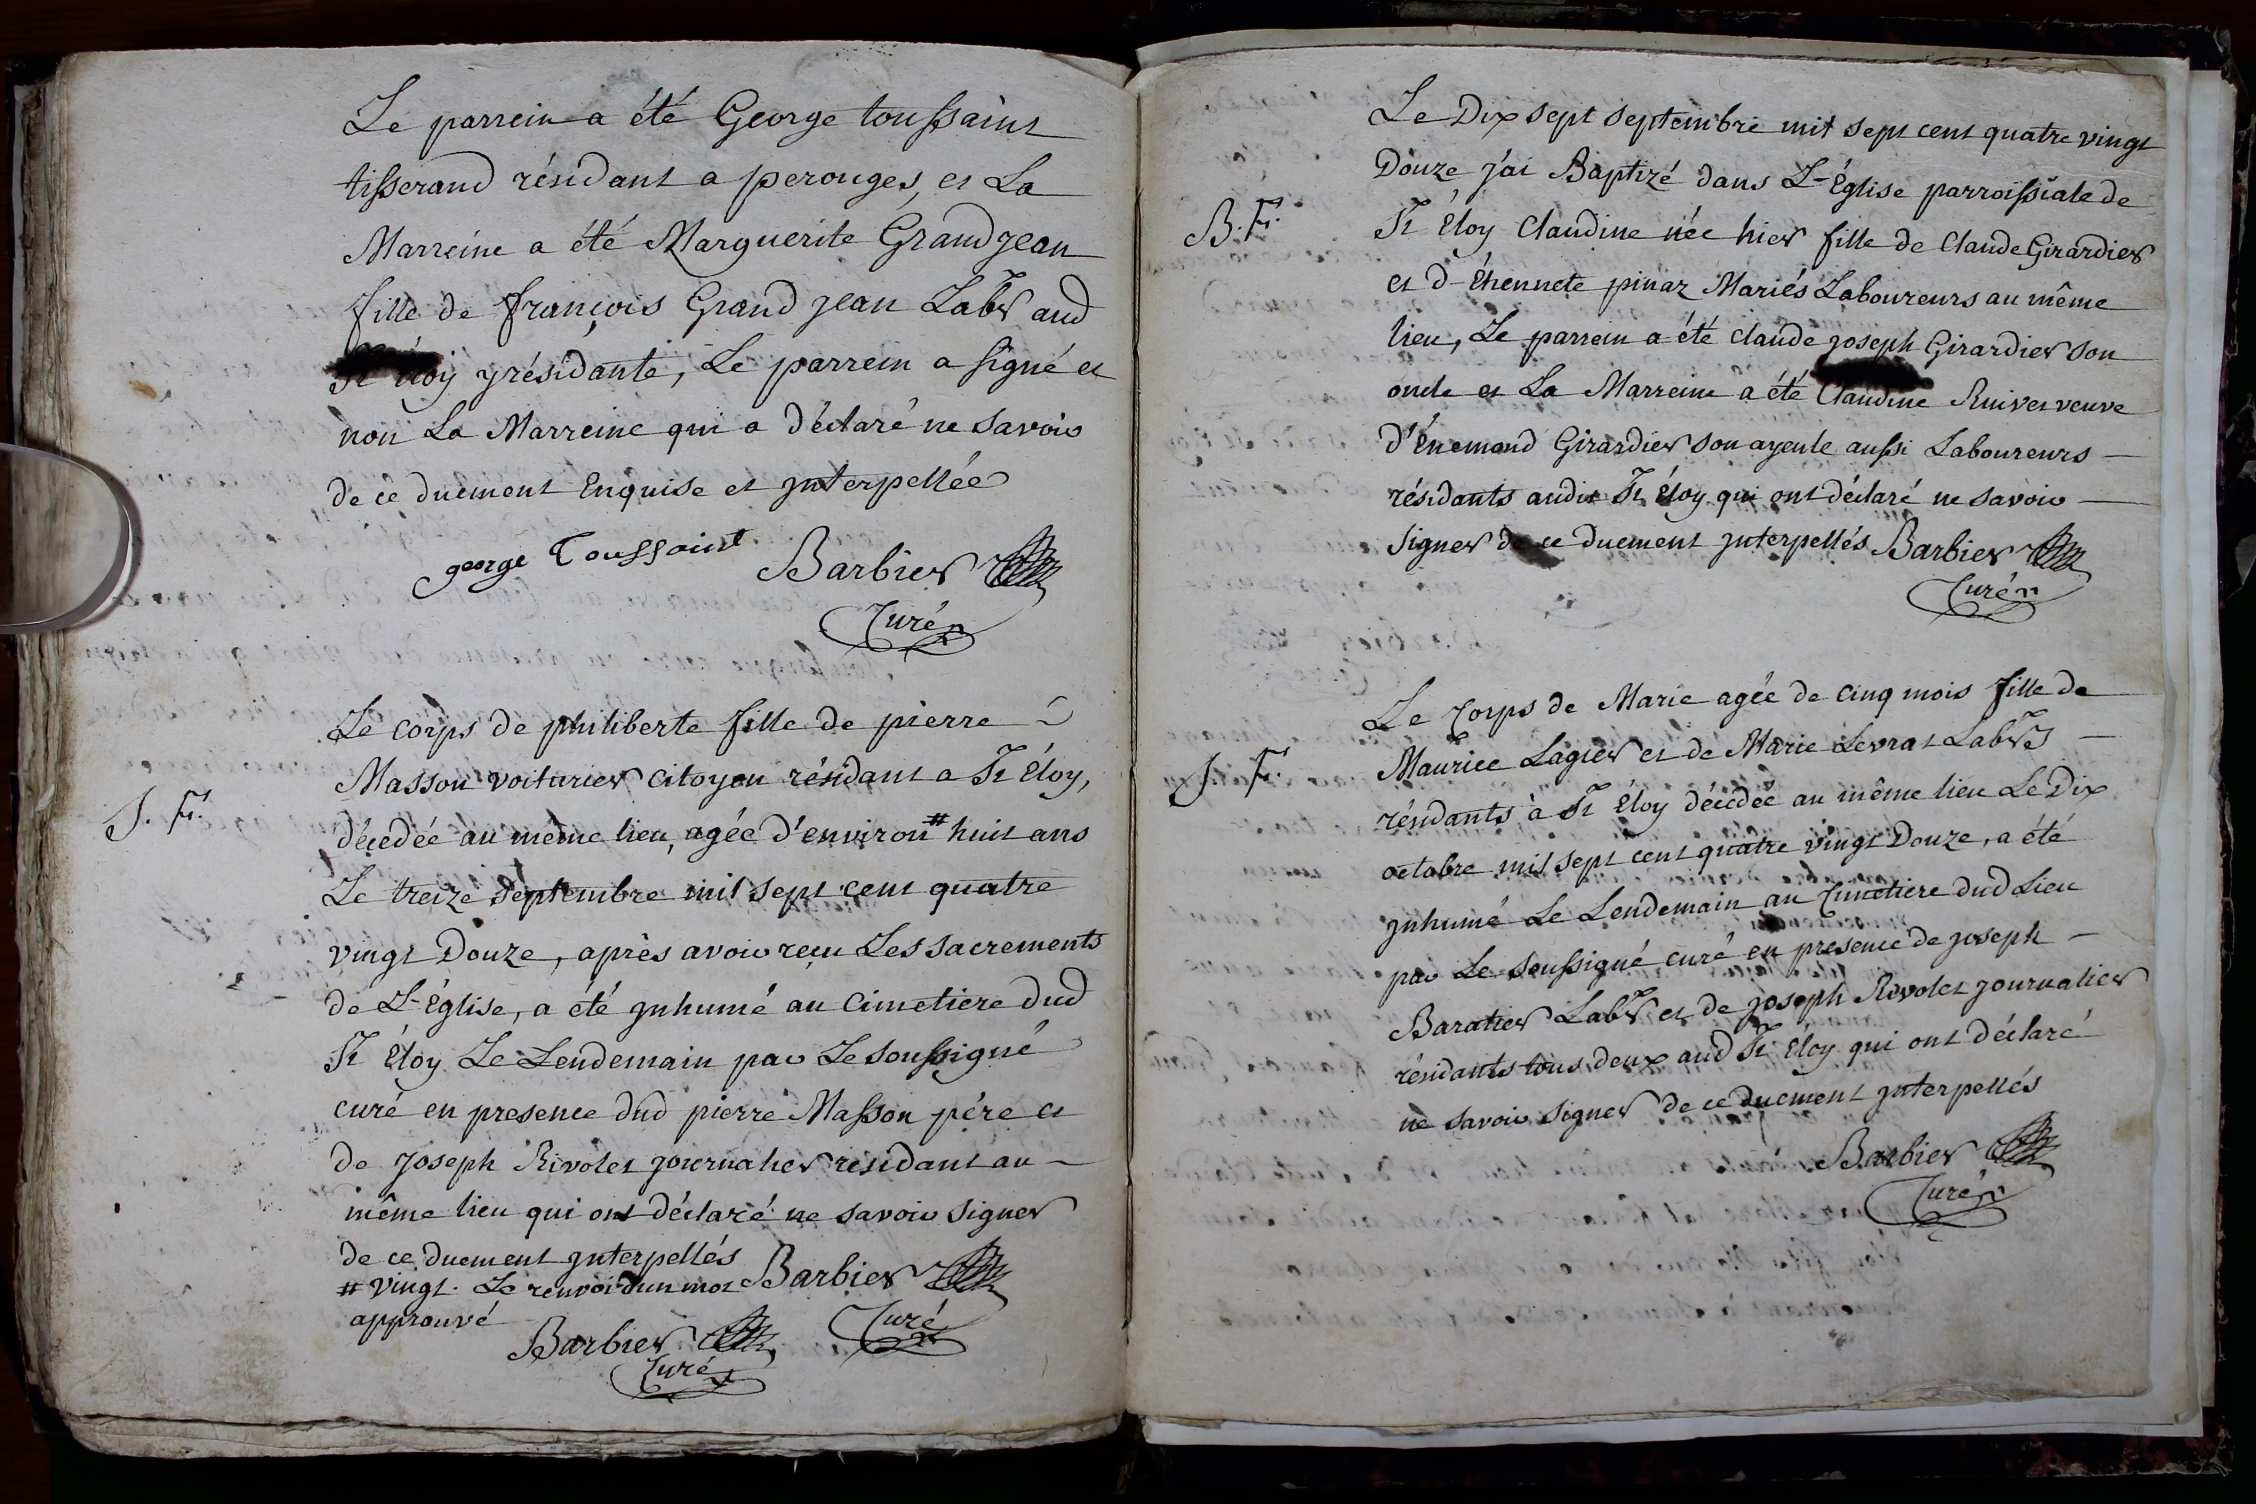 Le parrein a été George toussaint
tisserand résidant a perouges, et La
Marreine a été Marguerite Grandjean
fille de françois Grand jean Labr aud
St éloy y résidante, Le parrein a signé et
non La Marreine qui a déclaré ne savoir
de ce duement Enquise et jnterpellée
george Toussaint Barbier
Curé
J. F.
Le corps de philiberte fille de pierre
Masson voiturier citoyen résidant a St Éloy,
décedée au même lieu, agée d'environ # huit ans
Le treize septembre mil sept cent quatre
vingt Douze, après avoir reçu Les sacrements
de L-Église, a été jnhumé au Cimetiere dud
St Éloy Le Lendemain par Le soussigné
curé en presence dud pierre Masson pére et
de joseph Rivolet journalier residant au
même lieu qui ont déclaré ne savoir signer
de ce duement jnterpellés
# vingt. Le renvoi d'un mot Barbier
approuvé Curé
Barbier
Curé
Le Dix sept septembre mil sept cent quatre vingt
Douze j'ai Baptizé dans L-Église parroissiale de
B. F.
St Éloy Claudine née hier fille de Claude Girardier
et d-Étiennete pinaz Mariés Laboureurs au même
lieu, Le parrein a été claude joseph Girardier son
oncle et La Marreine a été Claudine Ruivet veuve
d'Énemond Girardier son ayeule aussi Laboureurs
résidants audit St Éloy qui ont déclaré ne savoir
signer de ce duement jnterpellés Barbier
Curé
J. F.
Le Corps de Marie agée de cinq mois fille de
Maurice Lagier et de Marie Levrat Labrs
résidants à St Éloy décedée au même lieu Le Dix
octobre mil sept cent quatre vingt Douze, a été
jnhumé Le Lendemain au Cimetiere dud Lieu
par Le soussigné curé en presence de joseph
Baratier Labr et de joseph Rivolet journalier
résidants tous deux aud St Éloy qui ont déclaré
ne savoir signer de ce duement jnterpellés
Barbier
Curé